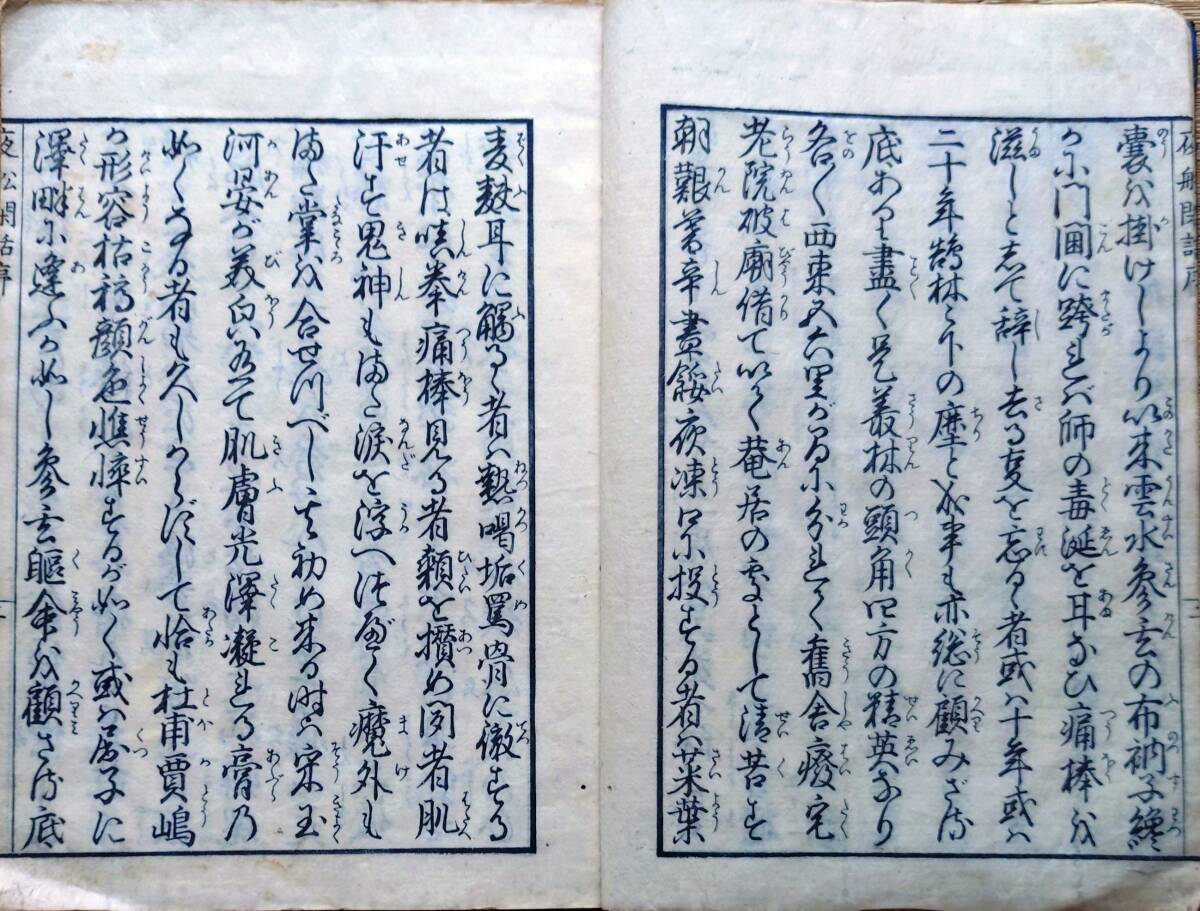 夜船閑話序
嚢を掛けしより以来雲水参玄の布衲子纔
かに門閫に跨れバ師の毒涎を耳なひ痛棒を
滋しとして辞し去る事を忘るゝ者或ハ十年或ハ
二十年鵠林々下の塵と成事も亦総に顧みざる
底あり盡く是叢林の頭角四方の精英なり
各〻西東五六里が間に分れて舊舎癈宅
老院破廟借て以て菴居の処として清苦す
朝艱暮辛晝餒夜凍口に投する者ハ菜葉
麦麩耳に觸るゝ者ハ熱喝垢罵骨に徹する
者は嗔拳痛棒見る者顙を攢め聞者肌
汗す鬼神もまた涙を浮へつべく魔外も
また掌を合せつべし其初め来る時は宋玉
河晏が美白有て肌膚光澤凝れる膏の
如くなる者も久しからずして恰も杜甫賈嶋
が形容枯槁顔色憔悴するが如く或ハ屈子に
澤畔に逢ふが如し参玄軀命を顧さる底
夜船閑話序